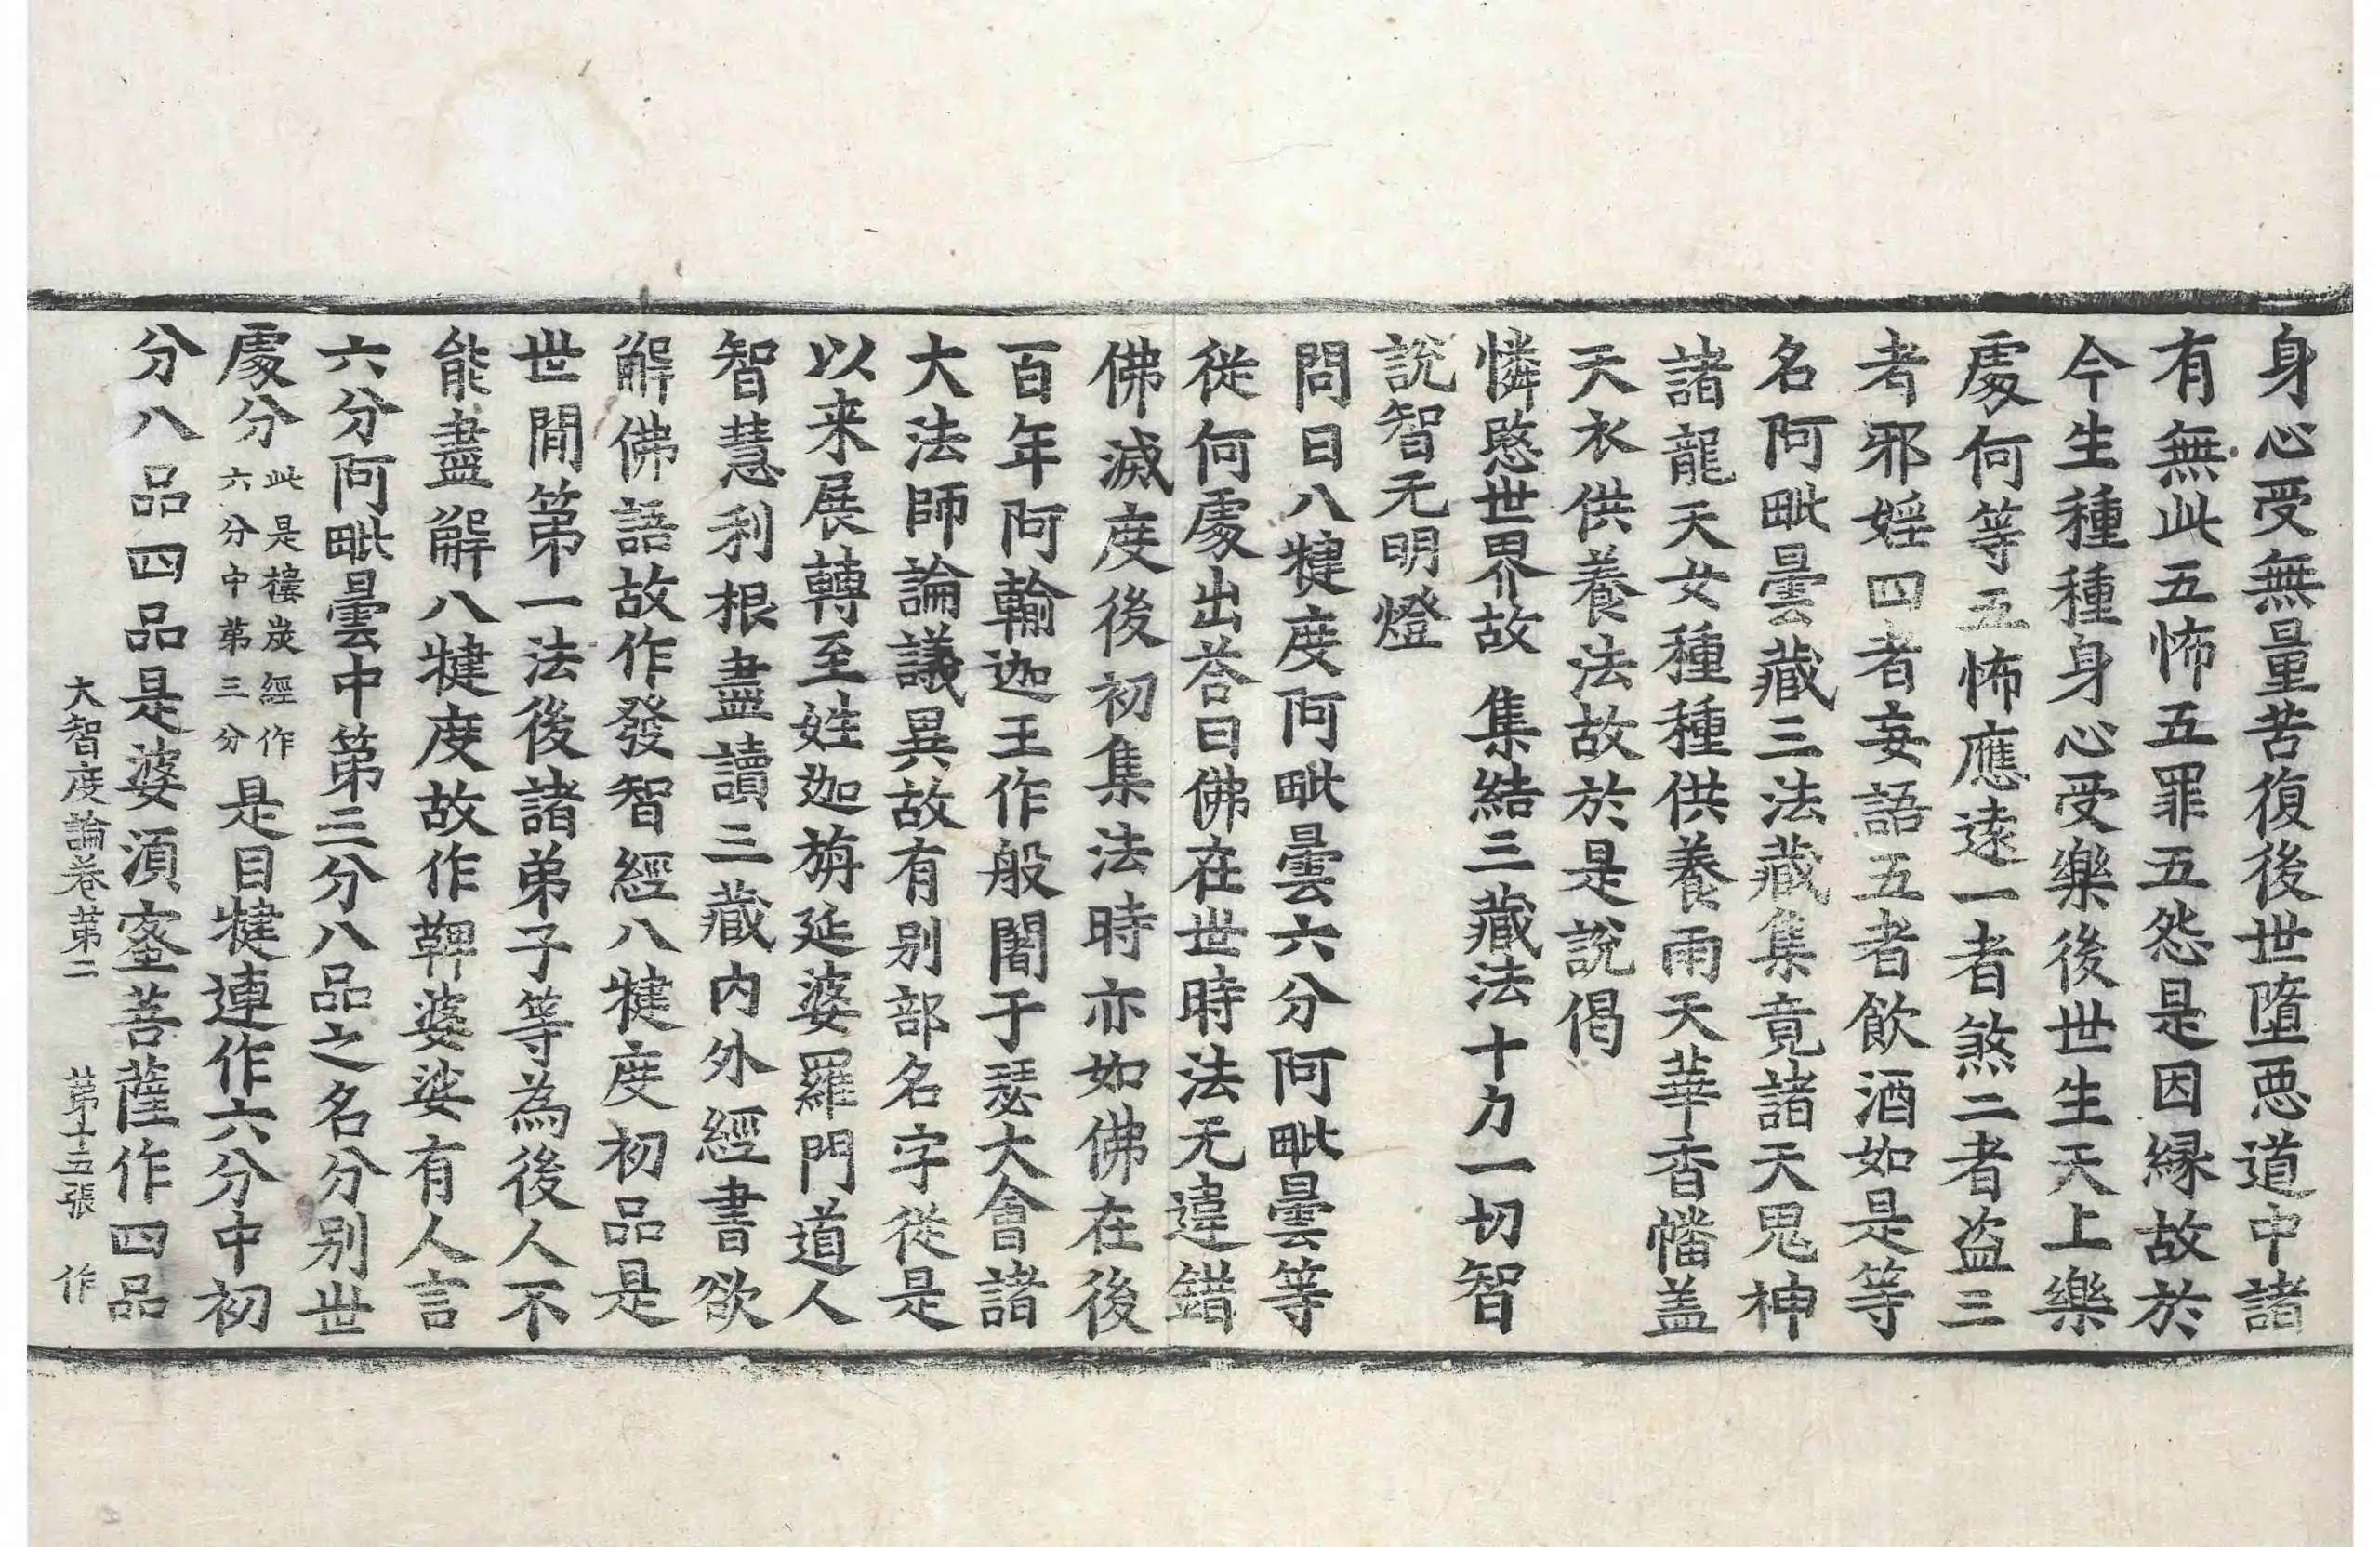 身心受無量苦復後世墮惡道中諸
有無此五怖五罪五怨是因縁故於
今生種種身心受樂後世生天上樂
處何等五怖應遠一者煞二者盜三
者邪婬四者妄語五者飲酒如是等
名阿毗曇藏三法藏集竟諸天鬼神
諸龍天女種種供養雨天華香幡盖
天衣供養法故於是說偈
憐愍世界故 集結三藏法 十力一切智
說智无明燈
問曰八犍度阿毗曇六分阿毗曇等
從何處出荅曰佛在世時法无違錯
佛滅度後初集法時亦如佛在後
百年阿輸迦王作般闍于瑟大會諸
大法師論議異故有别部名字從是
以来展轉至姓迦旃延婆羅門道人
智慧利根盡讀三藏內外經書欲
解佛語故作發智經八犍度初品是
世閒第一法後諸弟子等為後人不
能盡解八犍度故作鞞婆娑有人言
六分阿毗曇中第三分八品之名分别世
處分此是樓炭經作六分中第三分是目犍連作六分中初
分八品四品是婆湏蜜菩薩作四品
大智度論卷第二 第十五張 作